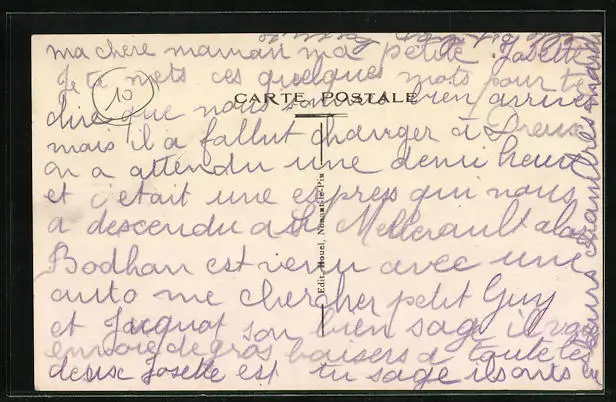 ma chere maman ma petite Josette
Je te mets ces quelques mots pour te
10
CARTE POSTALE
dire que nous sommes bien arrivés
mais il a fallut changer a Dreux
on a attendu une demi heure
et c'etait une espres qui nous
a descendu a St Mellerault alor
Bodhan est venu avec une
auto me chercher petit Guy
et Jacquot son bien sage il vou
envoie de gros baisers a toute les
deux Josette est tu sage
Edit. Houel, Nonant-le-Pin